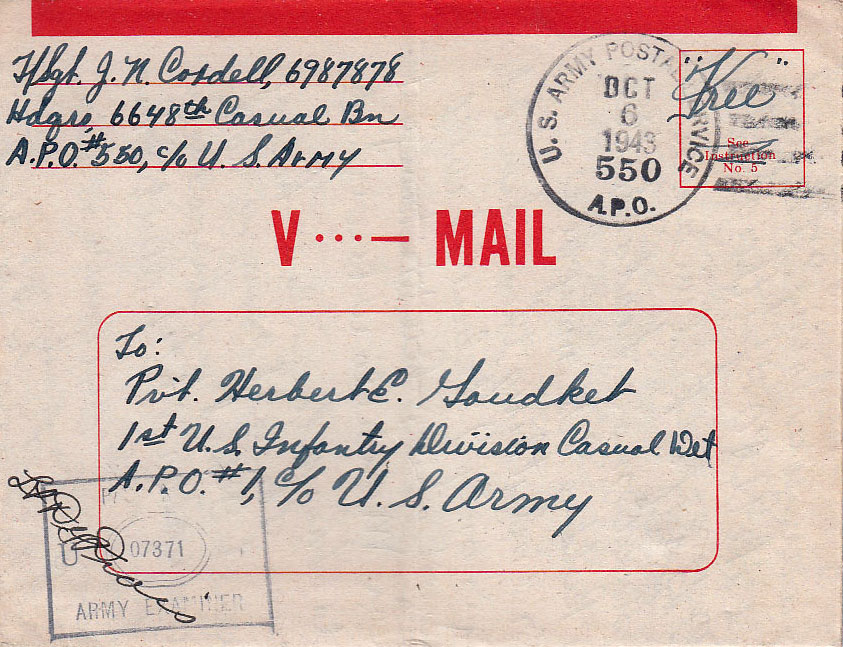 T/Sgt. J. N. Cordell, 6987878
Hdqrs, 6648th Casual Bn
A.P.O. #550, c/o U. S. Army
U.S. ARMY POSTAL SERVICE
OCT
6
1943
550
A.P.O.
"Free"
See
Instruction
No. 5
V ···— MAIL
To:
Pvt. Herbert E. Goudket
1st U.S. Infantry Division Casual Det
A.P.O. #1, c/o U. S. Army
U
07371
ARMY EXAMINER